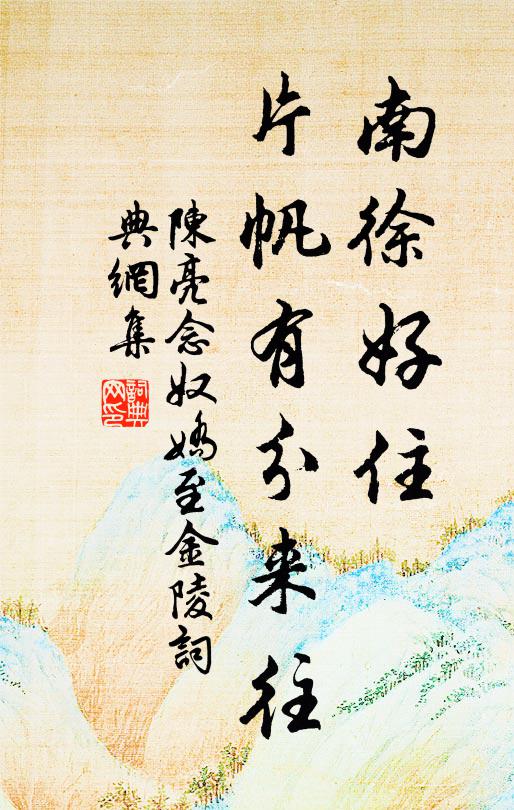 南徐好住
片帆有分来往
陳亮念奴嬌至金陵詞
典網集
詞典
网印